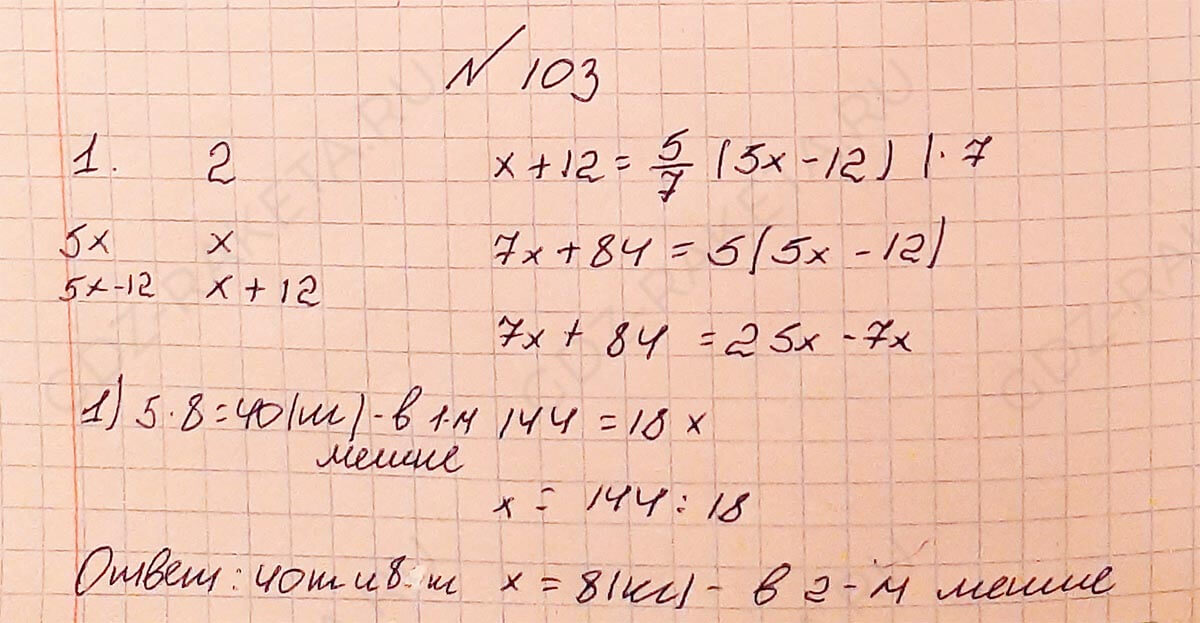 № 103
1. 2
5x x
5x-12 x + 12
x + 12 = 5/7 (5x - 12) | · 7
7x + 84 = 5(5x - 12)
7x + 84 = 25x - 7x
144 = 18x
x = 144 : 18
x = 8(кг) - в 2-м мешке
1) 5 · 8 = 40(м) - в 1-м
мешке
Ответ: 40т и 8 т
GDZ-RAKETA.RU
GDZ-RAKETA.RU